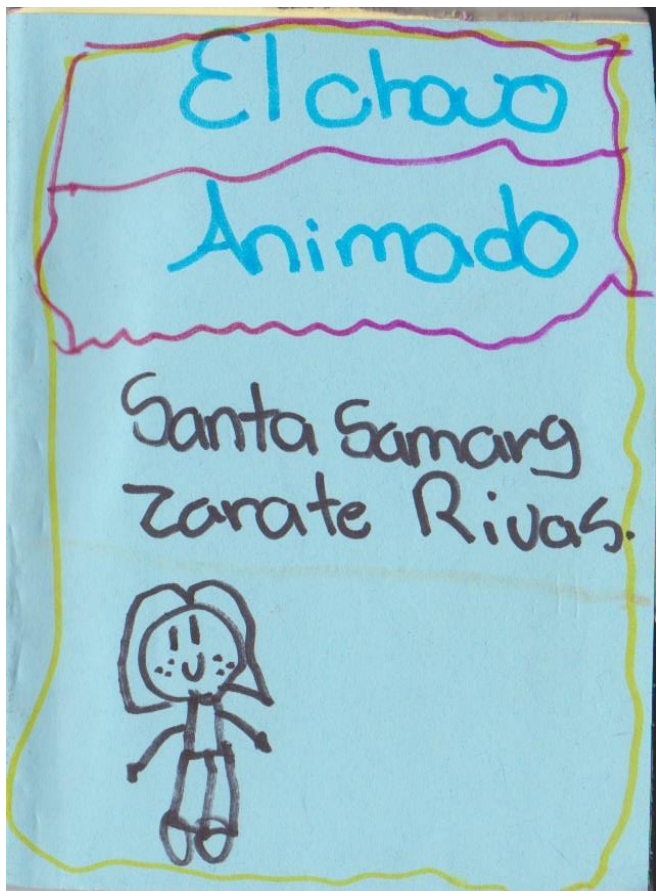 El chavo
Animado
Santa Samarg
Zarate Rivas.